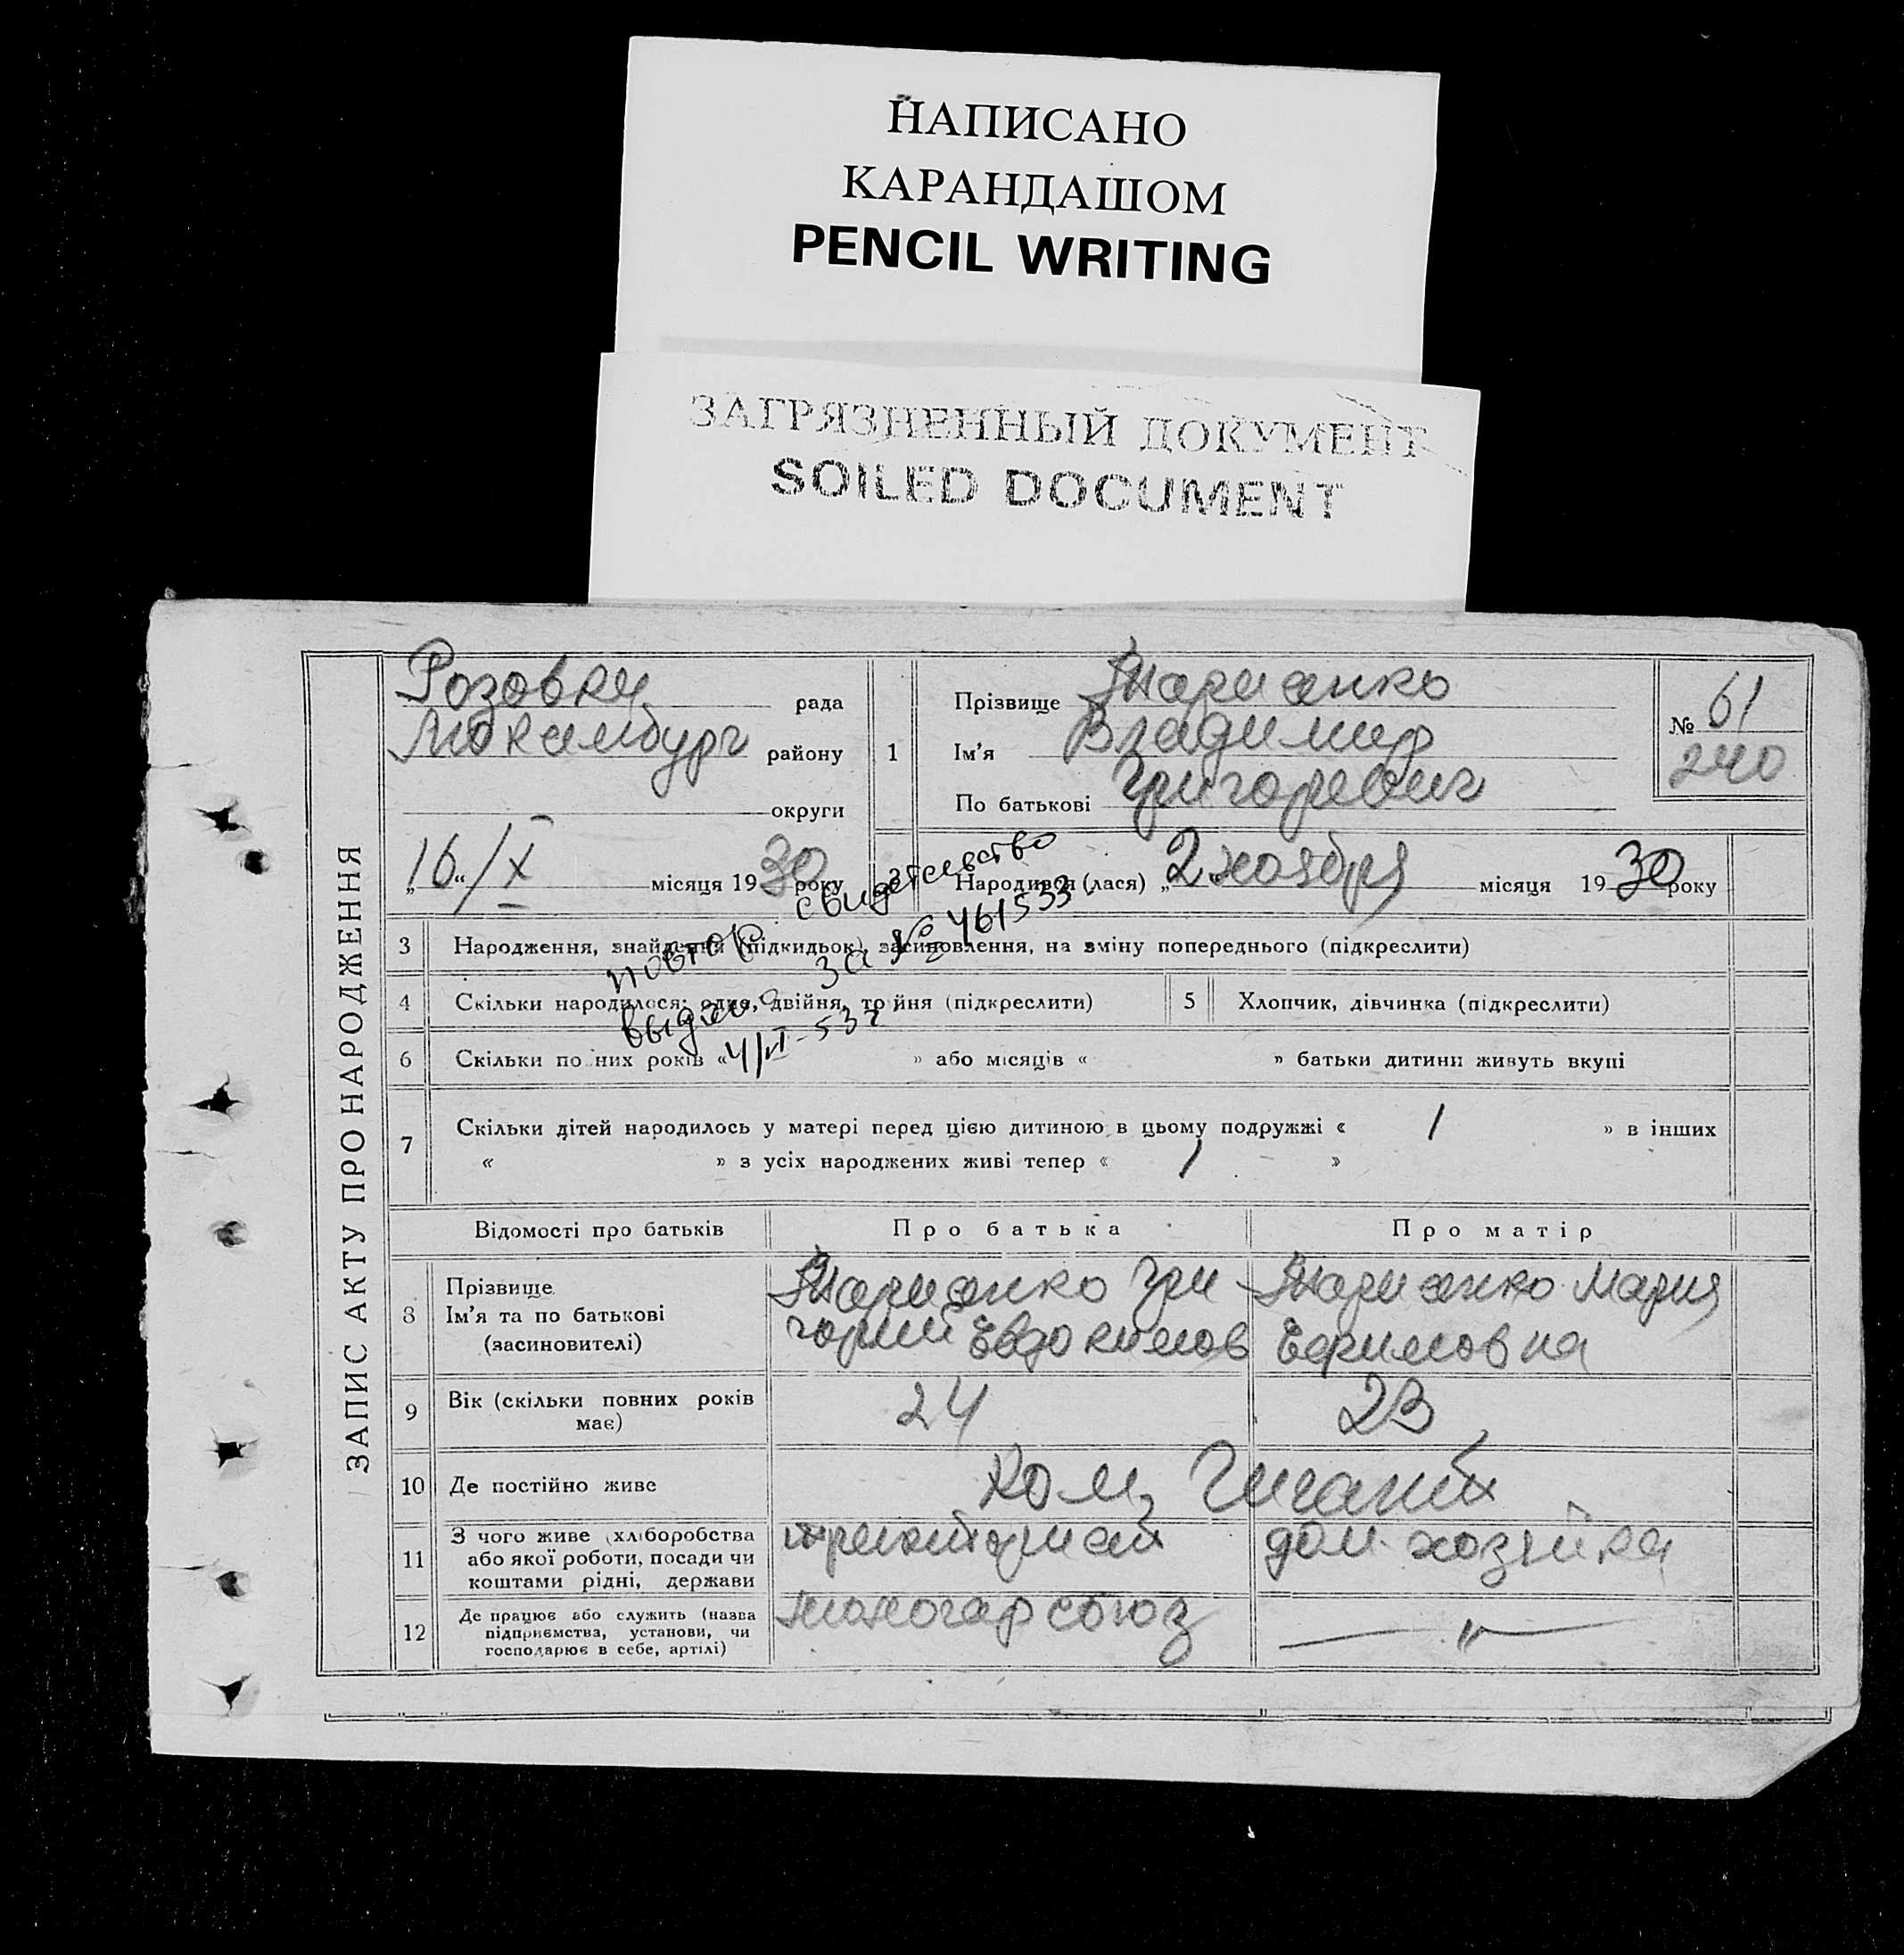 НАПИСАНО
КАРАНДАШОМ
PENCIL WRITING
ЗАГРЯЗНЕННЫЙ ДОКУМЕНТ
SOILED DOCUMENT
ЗАПИС АКТУ ПРО НАРОДЖЕННЯ
Розовка рада
району
округи
„16“/X місяця 1930 року
1
Прізвище
Ім'я Владимир
По батькові Григоревич
№ 61
240
2 Народився (лася) „2„ ноября місяця 1930 року
повтор. свидетельство
выдано за № 461533
4/VI-53г.
3 Народження, знайдення (підкидьок), засиновлення, на зміну попереднього (підкреслити)
4 Скільки народилося: одно, двійня, тройня (підкреслити)
5 Хлопчик, дівчинка (підкреслити)
6 Скільки повних років « » або місяців « » батьки дитини живуть вкупі
7 Скільки дітей народилось у матері перед цією дитиною в цьому подружжі « 1 » в інших
« » з усіх народжених живі тепер « 1 »
Відомості про батьків Про батька Про матір
8 Прізвище
Ім'я та по батькові
(засиновителі)
Гри
горий Евдокимов
Мария
Ефимовна
9 Вік (скільки повних років
має)
24 23
10 Де постійно живе
Ком. Гигант
11 З чого живе (хліборобства
або якої роботи, посади чи
коштами рідні, держави
тракторист дом. хозяйка
12 Де працює або служить (назва
підприємства, установи, чи
господарює в себе, артілі)
— „ —